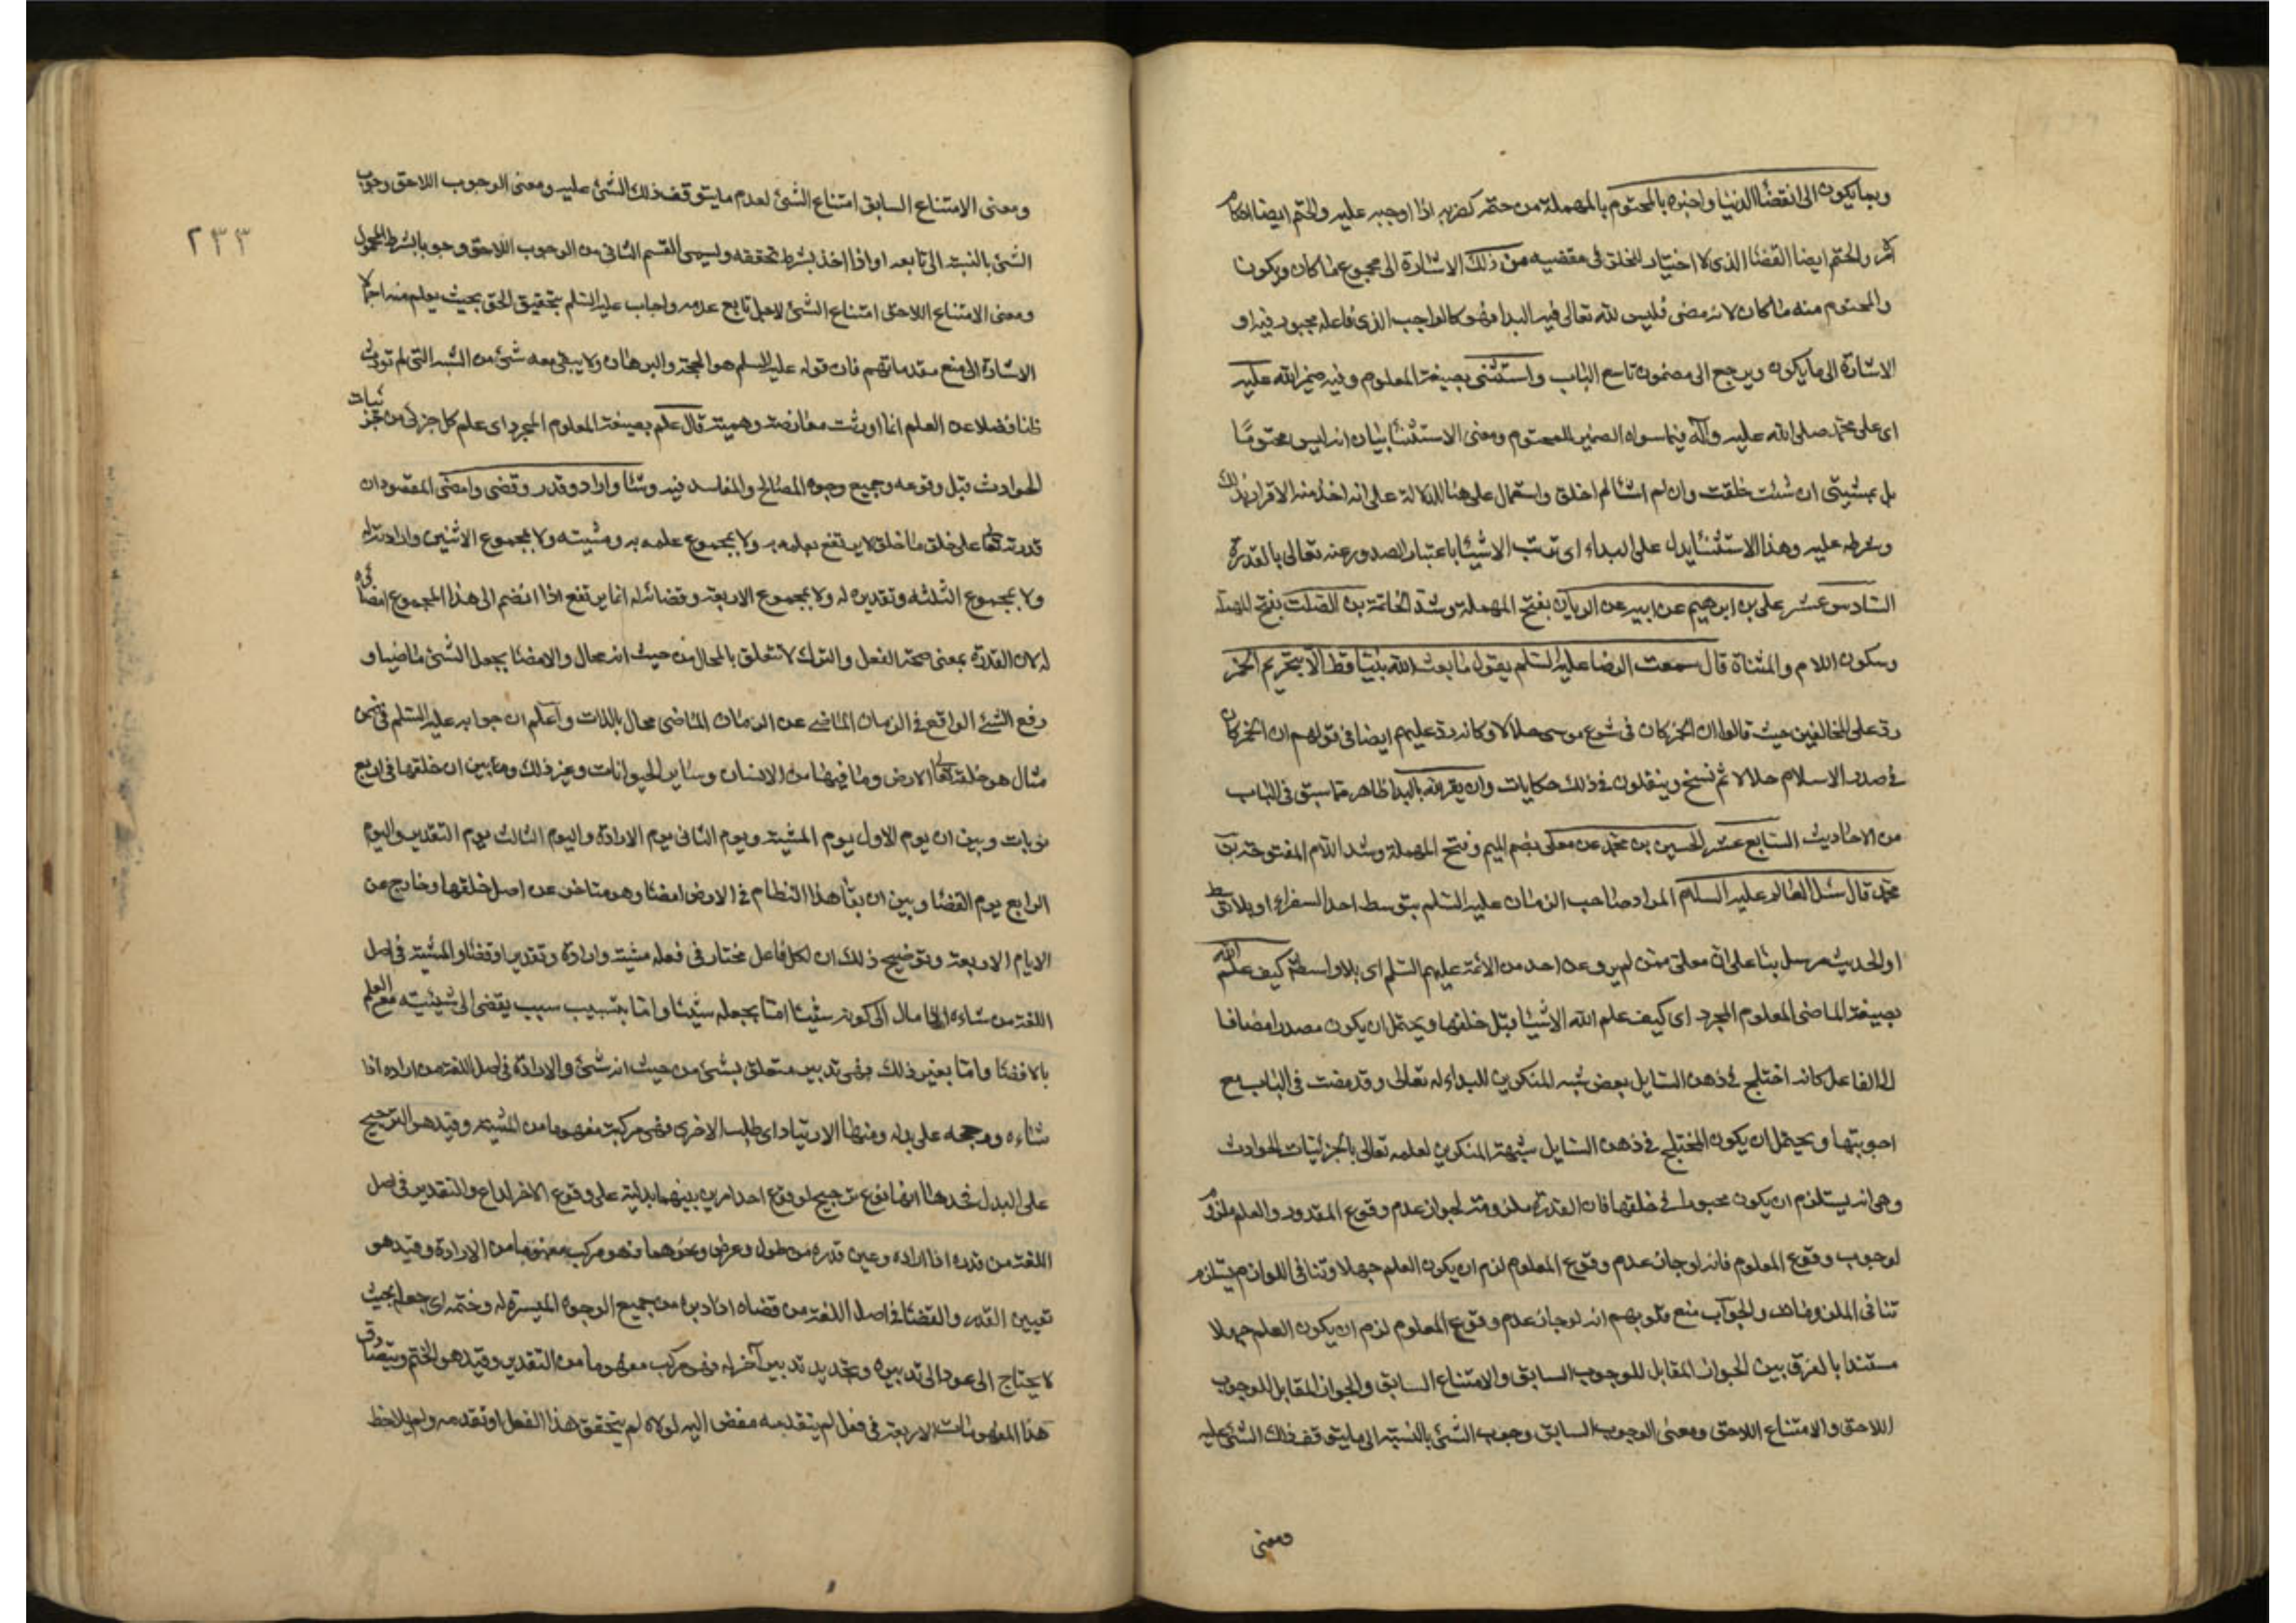 وبما يكون الى انقضاء الدنيا واخبره بالمحتوم بالمهملة من حتمه كضربه اذا اوجبه عليه والحتم ايضا احكام
الامر والحتم ايضا القضاء الذى لا اختيار للخلق فى مقضيه من ذلك الاشارة الى مجموع ما كان ويكون
والمحتوم منه ما كان لانه مضى فليس لله تعالى فيه البداء فهو كالواجب الذى فاعله مجبور فيه او
الاشارة الى ما يكون ويرجع الى مضمون تاسع الباب واستثنى بصيغة المعلوم وفيه ضمير الله عليه
اى على محمد صلى الله عليه وآله فيما سواه الضمير للمحتوم ومعنى الاستثناء بيان انه ليس محتوما
بل بمشيتى ان شئت خلقت وان لم اشأ لم اخلق واستعمال على هنا للدلالة على انه اخذ منه الاقرار بذلك
وشرطه عليه وهذا الاستثناء يدل على البداء اى ترتب الاشياء باعتبار الصدور عنه تعالى بالقدرة
السادس عشر على بن ابرهيم عن ابيه عن الريان بفتح المهملة وشد الخاتمة بن الصلت بفتح المهملة
وسكون اللام والمثناة قال سمعت الرضا عليه السلم يقول ما بعث الله نبيا قط الا بتحريم الخمر
رد على المخالفين حيث قالوا ان الخمر كان فى شرع موسى حلالا وكانه رد عليهم ايضا فى قولهم ان الخمر كان
فى صدر الاسلام حلالا ثم نسخ وينقلون فى ذلك حكايات وان يقر لله بالبداء ظاهر مما سبق فى الباب
من الاحاديث السابع عشر الحسين بن محمد عن معلى بضم الميم وفتح المهملة وشد اللام المفتوحة بن
محمد قال سئل العالم عليه السلام المراد صاحب الزمان عليه السلم بتوسط احد السفراء او بلا توسط
او الحديث مرسل بناء على ان معلى ممن لم يرو عن احد من الائمة عليهم السلم اى بلا واسطة كيف علم الله
بصيغة الماضى المعلوم المجرد اى كيف علم الله الاشياء قبل خلقها ويحتمل ان يكون مصدرا مضافا
الى الفاعل كانه اختلج فى ذهن السايل بعض شبه المنكرين للبداء له تعالى وقد مضت فى الباب مع
اجوبتها ويحتمل ان يكون المختلج فى ذهن السايل شبهة المنكرين لعلمه تعالى بالجزئيات الحوادث
وهى انه يستلزم ان يكون مجبورا فى خلقها فان القدرة ملزومة لجواز عدم وقوع المقدور والعلم ملزوم
لوجوب وقوع المعلوم فانه لو جاز عدم وقوع المعلوم لزم ان يكون العلم جهلا وتنافى اللوازم يستلزم
تنافى الملزومات والجواب منع قلوبهم انه لو جاز عدم وقوع المعلوم لزم ان يكون العلم جهلا
مستندا بالفرق بين الجواز المقابل للوجوب السابق والامتناع السابق والجواز المقابل للوجوب
اللاحق والامتناع اللاحق ومعنى الوجوب السابق وجوب الشئ بالنسبة الى ما يتوقف ذلك الشئ عليه
ومعنى
٢٣٣
ومعنى الامتناع السابق امتناع الشئ لعدم ما يتوقف ذلك الشئ عليه ومعنى الوجوب اللاحق وجوب
الشئ بالنسبة الى تابعه او اذا اخذ بشرط تحققه ويسمى القسم الثانى من الوجوب اللاحق وجوبا بشرط المحمول
ومعنى الامتناع اللاحق امتناع الشئ لاجل تابع عدمه واجاب عليه السلم بتحقيق الحق بحيث يعلم منه اجمالا
الاشارة الى منع مقدماتهم فان قوله عليه السلم هو الحجة والبرهان ولا يبقى معه شئ من الشبه التى لم تورث
ظنا فضلا عن العلم انما اورثت معارضة وهمية قال علم بصيغة المعلوم المجرد اى علم كل جزئى من جزئيات
الحوادث قبل وقوعه وجميع وجوه المصالح والمفاسد فيه وشاء واراد وقدر وقضى وامضى المقصود ان
قدرته تعالى على خلق ما خلق لا يرتفع بعلمه به ولا بمجموع علمه به ومشيته ولا بمجموع الاثنين وارادته له
ولا بمجموع الثلثة وتقديره له ولا بمجموع الاربعة وقضائه له انما يرتفع اذا انضم الى هذا المجموع امضائه
له لان القدرة بمعنى صحة الفعل والترك لا تتعلق بالمحال من حيث انه محال والامضاء يجعل الشئ ماضيا و
رفع الشئ الواقع فى الزمان الماضى عن الزمان الماضى محال بالذات واعلم ان جوابه عليه السلم فى ضمن
مثال هو خلقه تعالى الارض وما فيها من الانسان وساير الحيوانات وغير ذلك وما بين ان خلقها فى اربع
نوبات وبين ان يوم الاول يوم المشية ويوم الثانى يوم الارادة واليوم الثالث يوم التقدير واليوم
الرابع يوم القضاء وبين ان بقاء هذا النظام فى الارض امضاء وهو متاخر عن اصل خلقها وخارج عن
الايام الاربعة وتوضيح ذلك ان لكل فاعل مختار فى فعله مشية وارادة وتقديرا وقضاء والمشية فى اصل
اللغة من شاءه اذا مال الى كونه شيئا اما بجعله شيئا واما بتسبيب سبب يفضى الى شيئيته مع العلم
بالافضاء واما بغير ذلك فهى تدبير متعلق بشئ من حيث انه شئ والارادة فى اصل اللغة من اراده اذا
شاءه ورجحه على بدله ومنها الارتياد اى طلب الاخرى فهى مركبة مفهوما من المشية وقيد هو الترجيح
على البدل فحدها انها نوع ترجيح لوقوع احد امرين بينهما بدلية على وقوع الاخر الداع والتقدير فى اصل
اللغة من قدره اذا اراده وعين قدره من طول وعرض ونحوهما فهو مركب مفهوما من الارادة وقيد هو
تعيين القدر والقضاء فى اصل اللغة من قضاه اذا دبره من جميع الوجوه الميسرة له وختمه اى جعله بحيث
لا يحتاج الى عود الى تدبيره وتجديد تدبير آخر له فهى مركب مفهوما من التقدير وقيد هو الختم ويتصادق
هذا المفهومات الاربعة فى فعل لم يتقدمه مفض اليه لولاه لم يتحقق هذا الفعل او تقدمه ولم يلاحظ